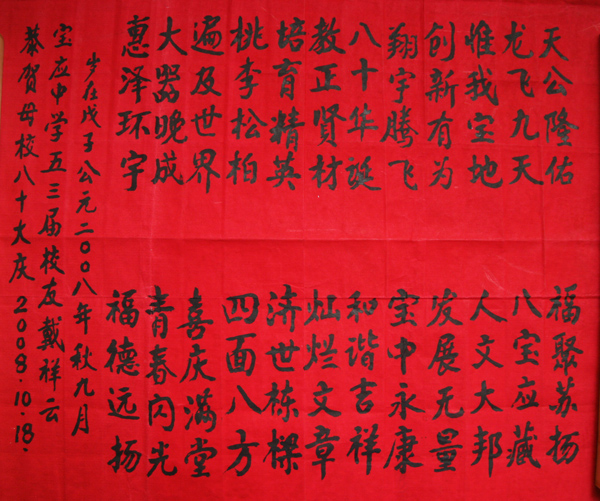 天公隆佑 福聚苏扬
龙飞九天 八宝应藏
惟我宝地 人文大邦
创新有为 发展无量
翔宇腾飞 宝中永康
八十华诞 和谐吉祥
教正贤材 灿烂文章
培育精英 济世栋樑
桃李松柏 四面八方
遍及世界 喜庆满堂
大器晚成 青春闪光
惠泽环宇 福德远扬
岁在戊子公元二〇〇八年秋九月
宝应中学五三届校友戴祥云
恭贺母校八十大庆2008.10.18.